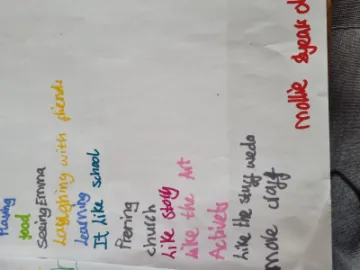 Having
food
Seeing Emma
Laughing with friends
Learning
It like school
Prering
church
Like story
Like the Art
Activets
Like the stuff we do
more clay
mollie 8 years